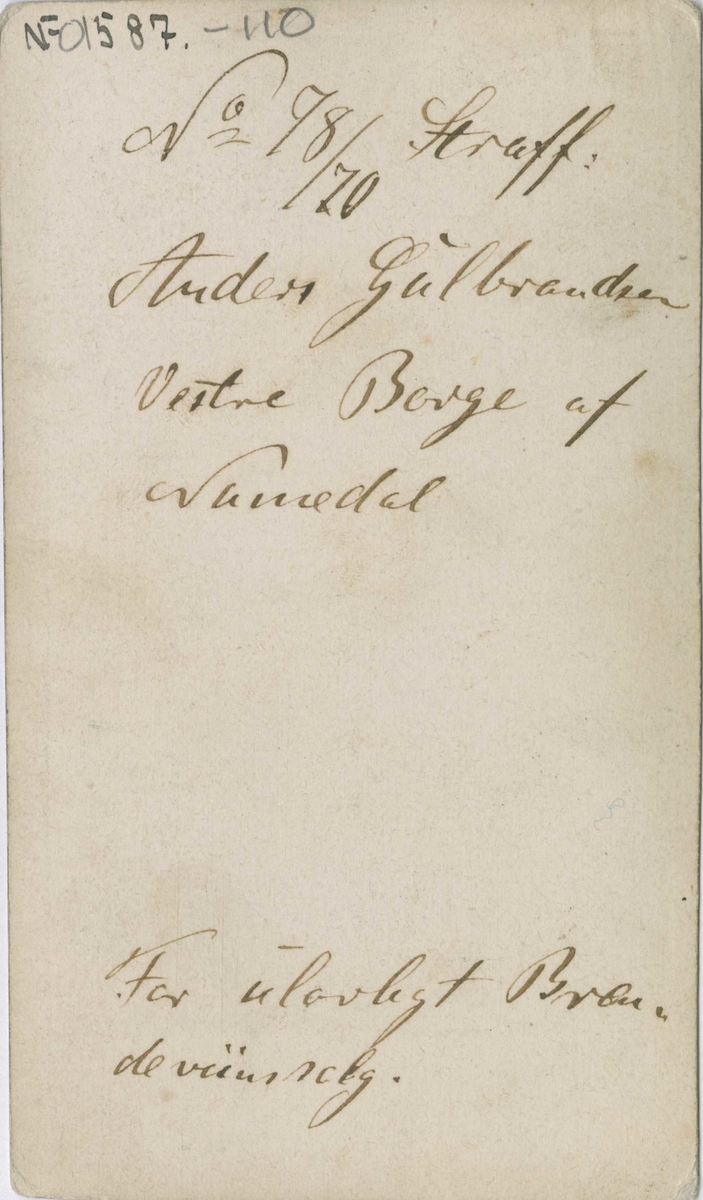 NF-01587.-110
No 78/70 Straff:
Anders Gulbrandsen
Vestre Borge af
Numedal
For ulovligt Bræn-
deviinssalg.